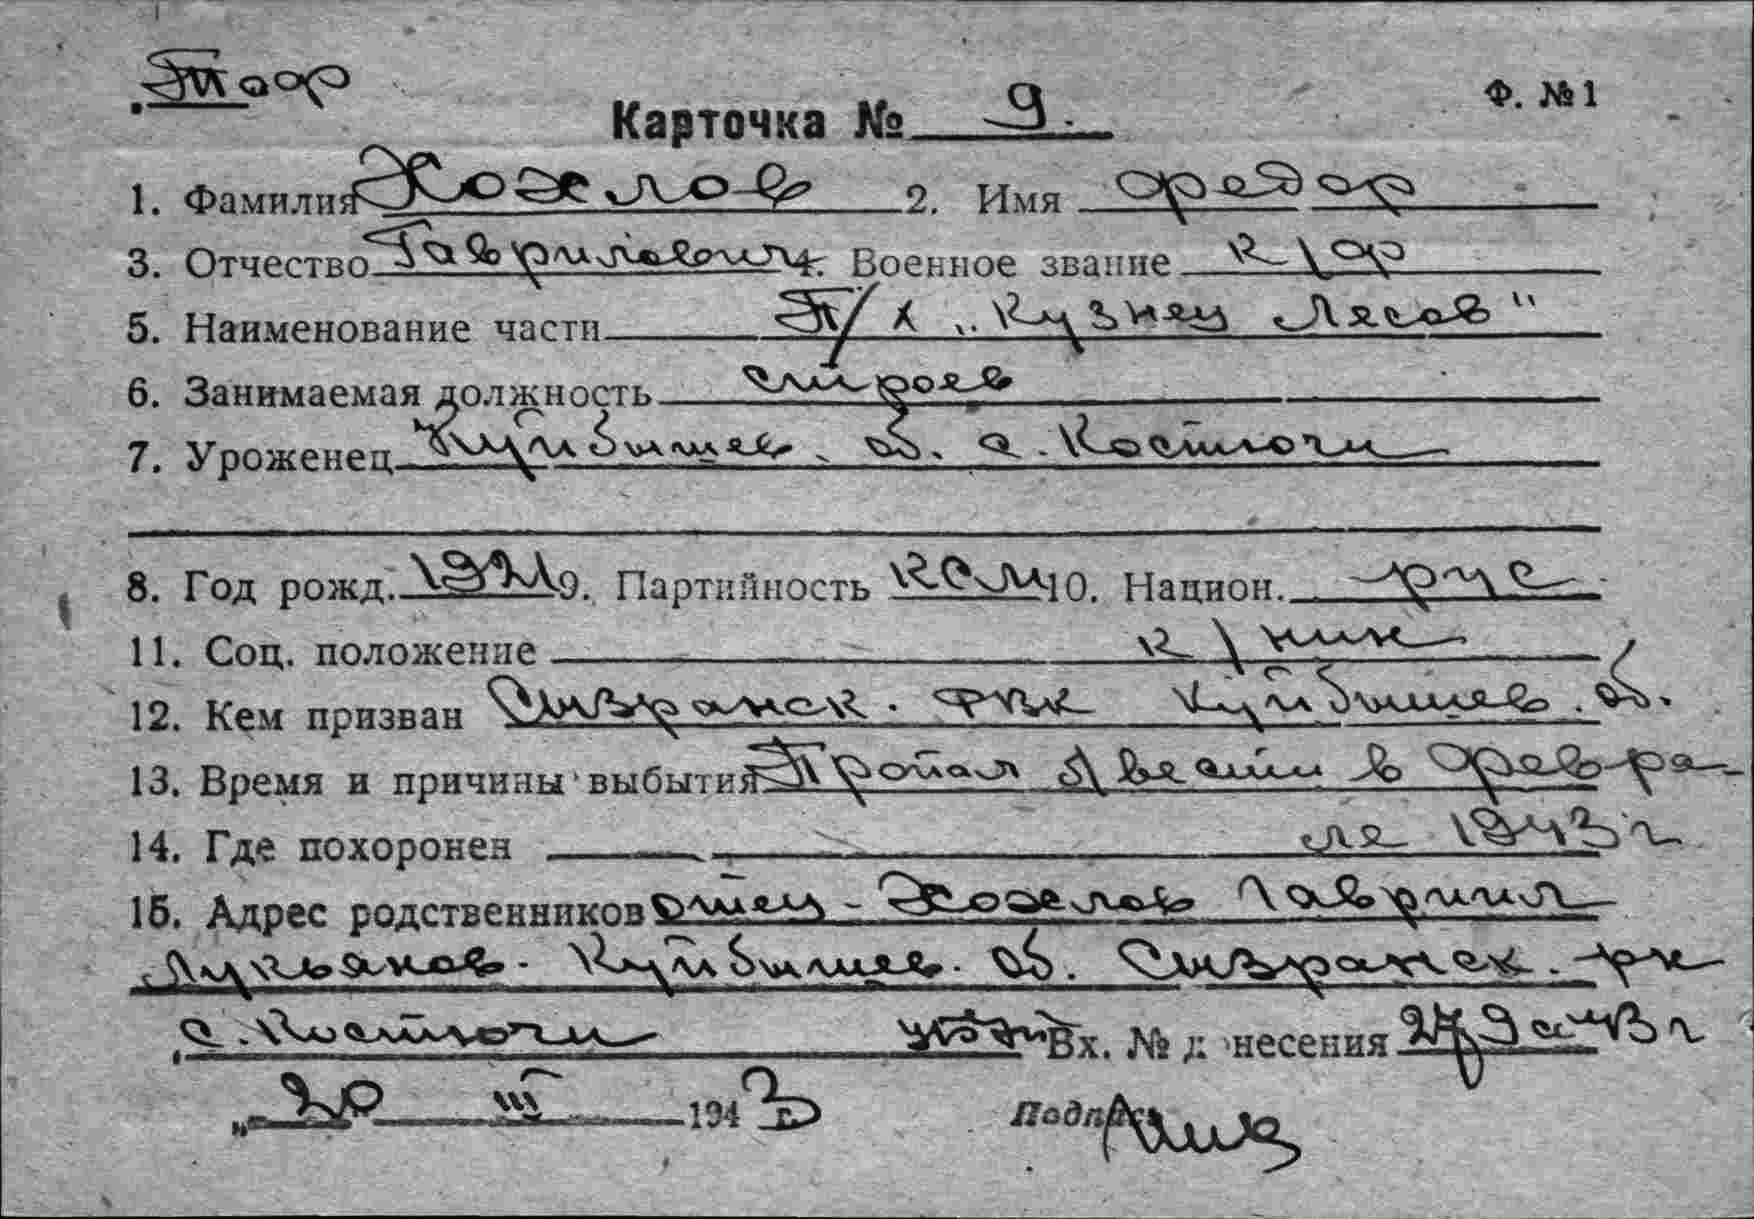 Тоф
Ф. №1
Карточка № 9.
1. Фамилия Хохлов 2. Имя Федор
3. Отчество Гаврилович 4. Военное звание к/ф
5. Наименование части Т/х „Кузнец Лесов"
6. Занимаемая должность строев
7. Уроженец Куйбышев. об. с. Костючи
8. Год рожд. 1921 9. Партийность КСМ 10. Национ. рус
11. Соц. положение к/ник
12. Кем призван Сызранск. РВК Куйбышев. об.
13. Время и причины выбытия Пропал б/вести в Февра-
14. Где похоронен ле 1943 г
15. Адрес родственников Отец - Хохлов Гавриил
Лукьянов. Куйбышев. об. Сызранск. рн
с. Костючи Вх. № донесения 279с 43 г
„20 III 1943 г. Подпись